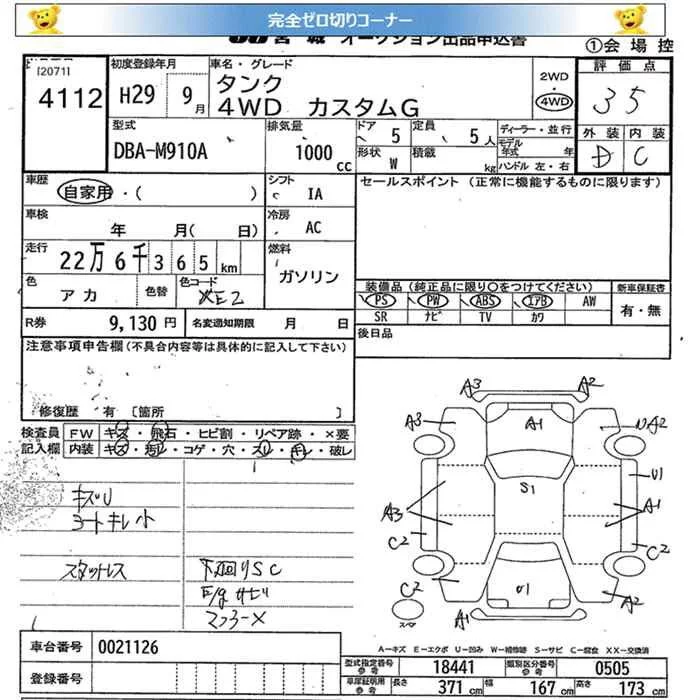 完全ゼロ切りコーナー
宮城 オークション出品申込書
①会場控
[2071]
4112
初度登録年月
H29 9月
車名・グレード
タンク
4WD カスタムG
2WD
・
4WD
評価点
35
外装 内装
D C
型式
DBA-M910A
排気量
1000cc
ドア 5
定員 5人
形状 W
積載 kg
ディーラー・並行
モデル年式 年
ハンドル 左・右
車歴
自家用・( )
シフト
IA
セールスポイント (正常に機能するものに限ります)
車検
年 月( 日)
冷房
AC
走行
22万6千365km
燃料
ガソリン
色
アカ
色替
色コード
XE2
装備品 (純正品に限り○をつけてください)
PS PW ABS エアB AW
SR ナビ TV カワ
新車保証書
有・無
R券 9,130円
名変通知期限 月 日
後日品
注意事項申告欄(不具合内容等は具体的に記入して下さい)
修復歴 有 [箇所 ]
検査員記入欄
FW キズ・飛石・ヒビ割・リペア跡・×要
内装 キズ・汚レ・コゲ・穴・スレ・キレ・破レ
キズU
シートキレ小
スタッドレス
下廻りSC
E/gサビ
マフラーX
A3 A2
A3 A1 A2
U1
S1
A3 A1
C2 C2
C2 U1 A2
A1
A-キズ E-エクボ U-凹み W-補修跡 S-サビ C-腐食 XX-交換済
車台番号 0021126
登録番号
型式指定番号 参考 18441
類別区分番号 参考 0505
車庫証明用 参考 長さ 371cm 幅 167cm 高さ 173cm